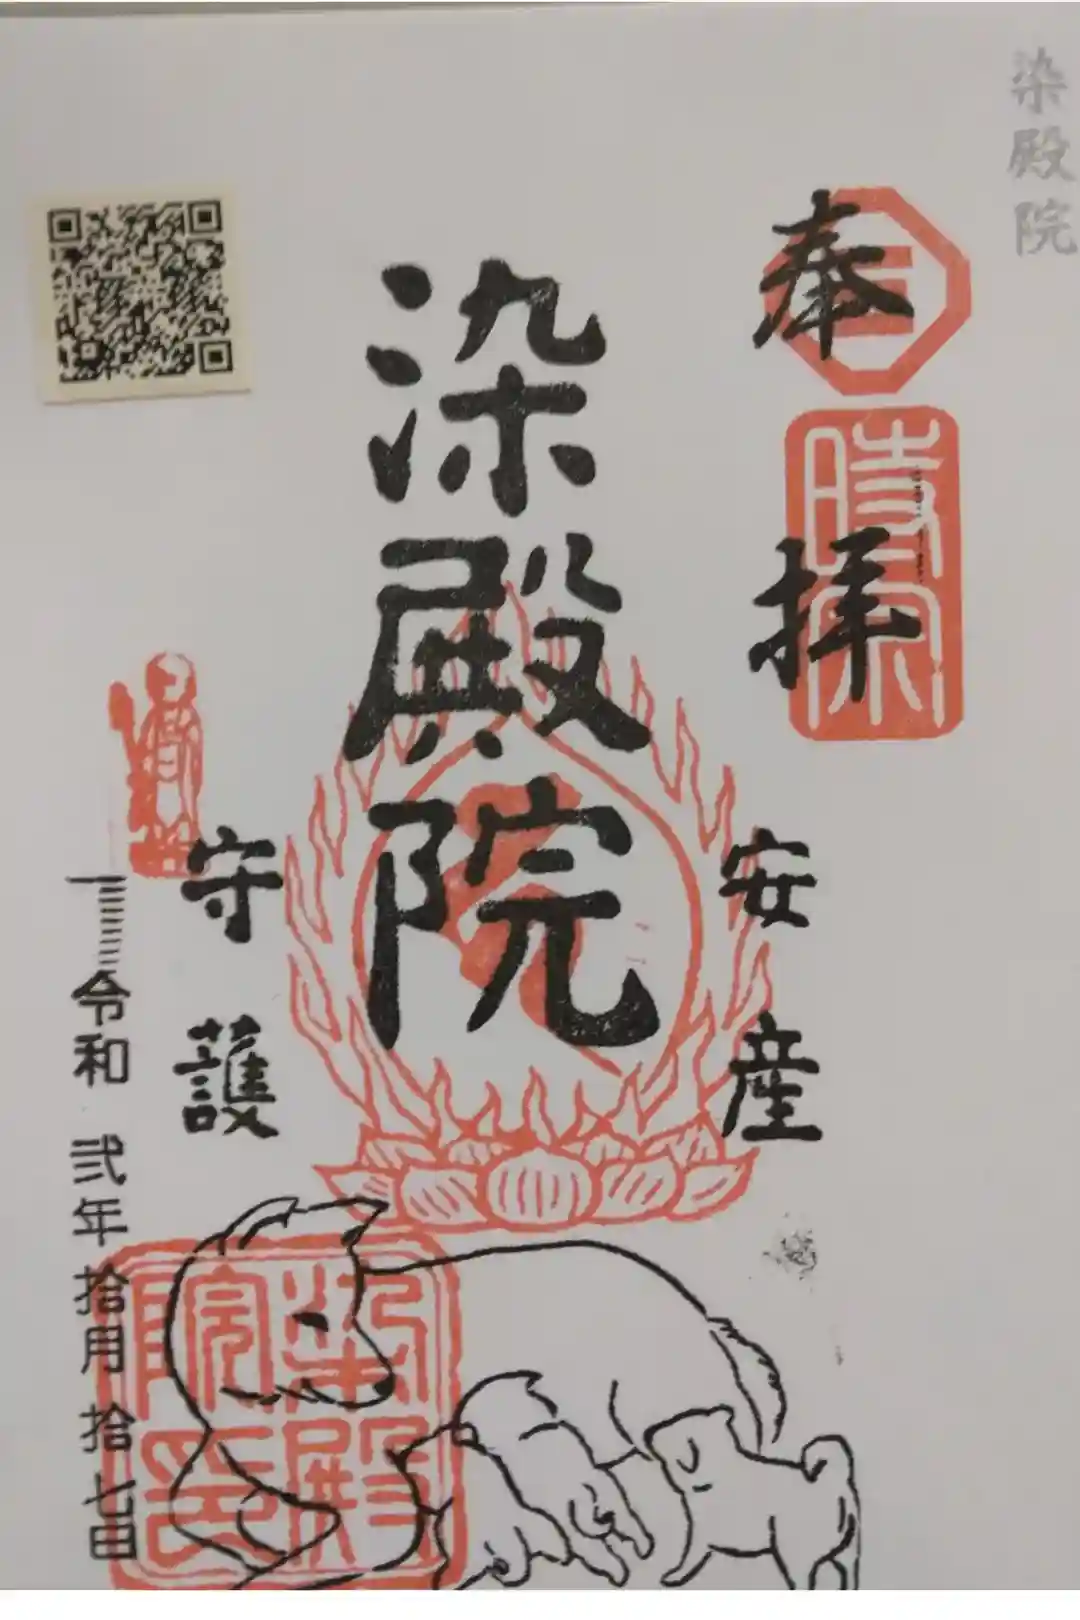 染殿院
奉拝
時宗
染殿院
安産
守護
令和 弐年 拾月 拾七日
染殿院印